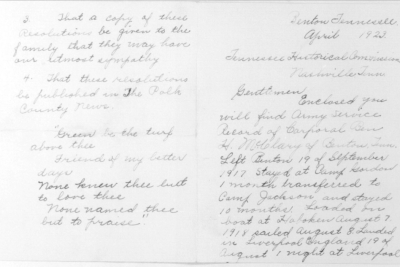 3. That a copy of these
Resolutions be given to the
family that they may have
our utmost sympathy
4. That these resolutions
be published in The Polk
County News.
"Green be the turf
above thee
Friend of my better
days
None knew thee but
to love thee
None named thee
but to praise".
Benton Tennessee
April 1922
Tennessee Historical
Nashville Tenn
Gentlemen,
Enclosed you
will find Army Service
Record of Corporal Ben
H. McClary of Benton, Tenn.
Left Benton 19 of September
1917 Stayed at Camp Gordon
1 month transferred to
Camp Jackson and stayed
10 months. Loaded on
boat at Hoboken August 7
1918 sailed August 8 landed
in Liverpool England 19 of
August 1 night at Liverpool